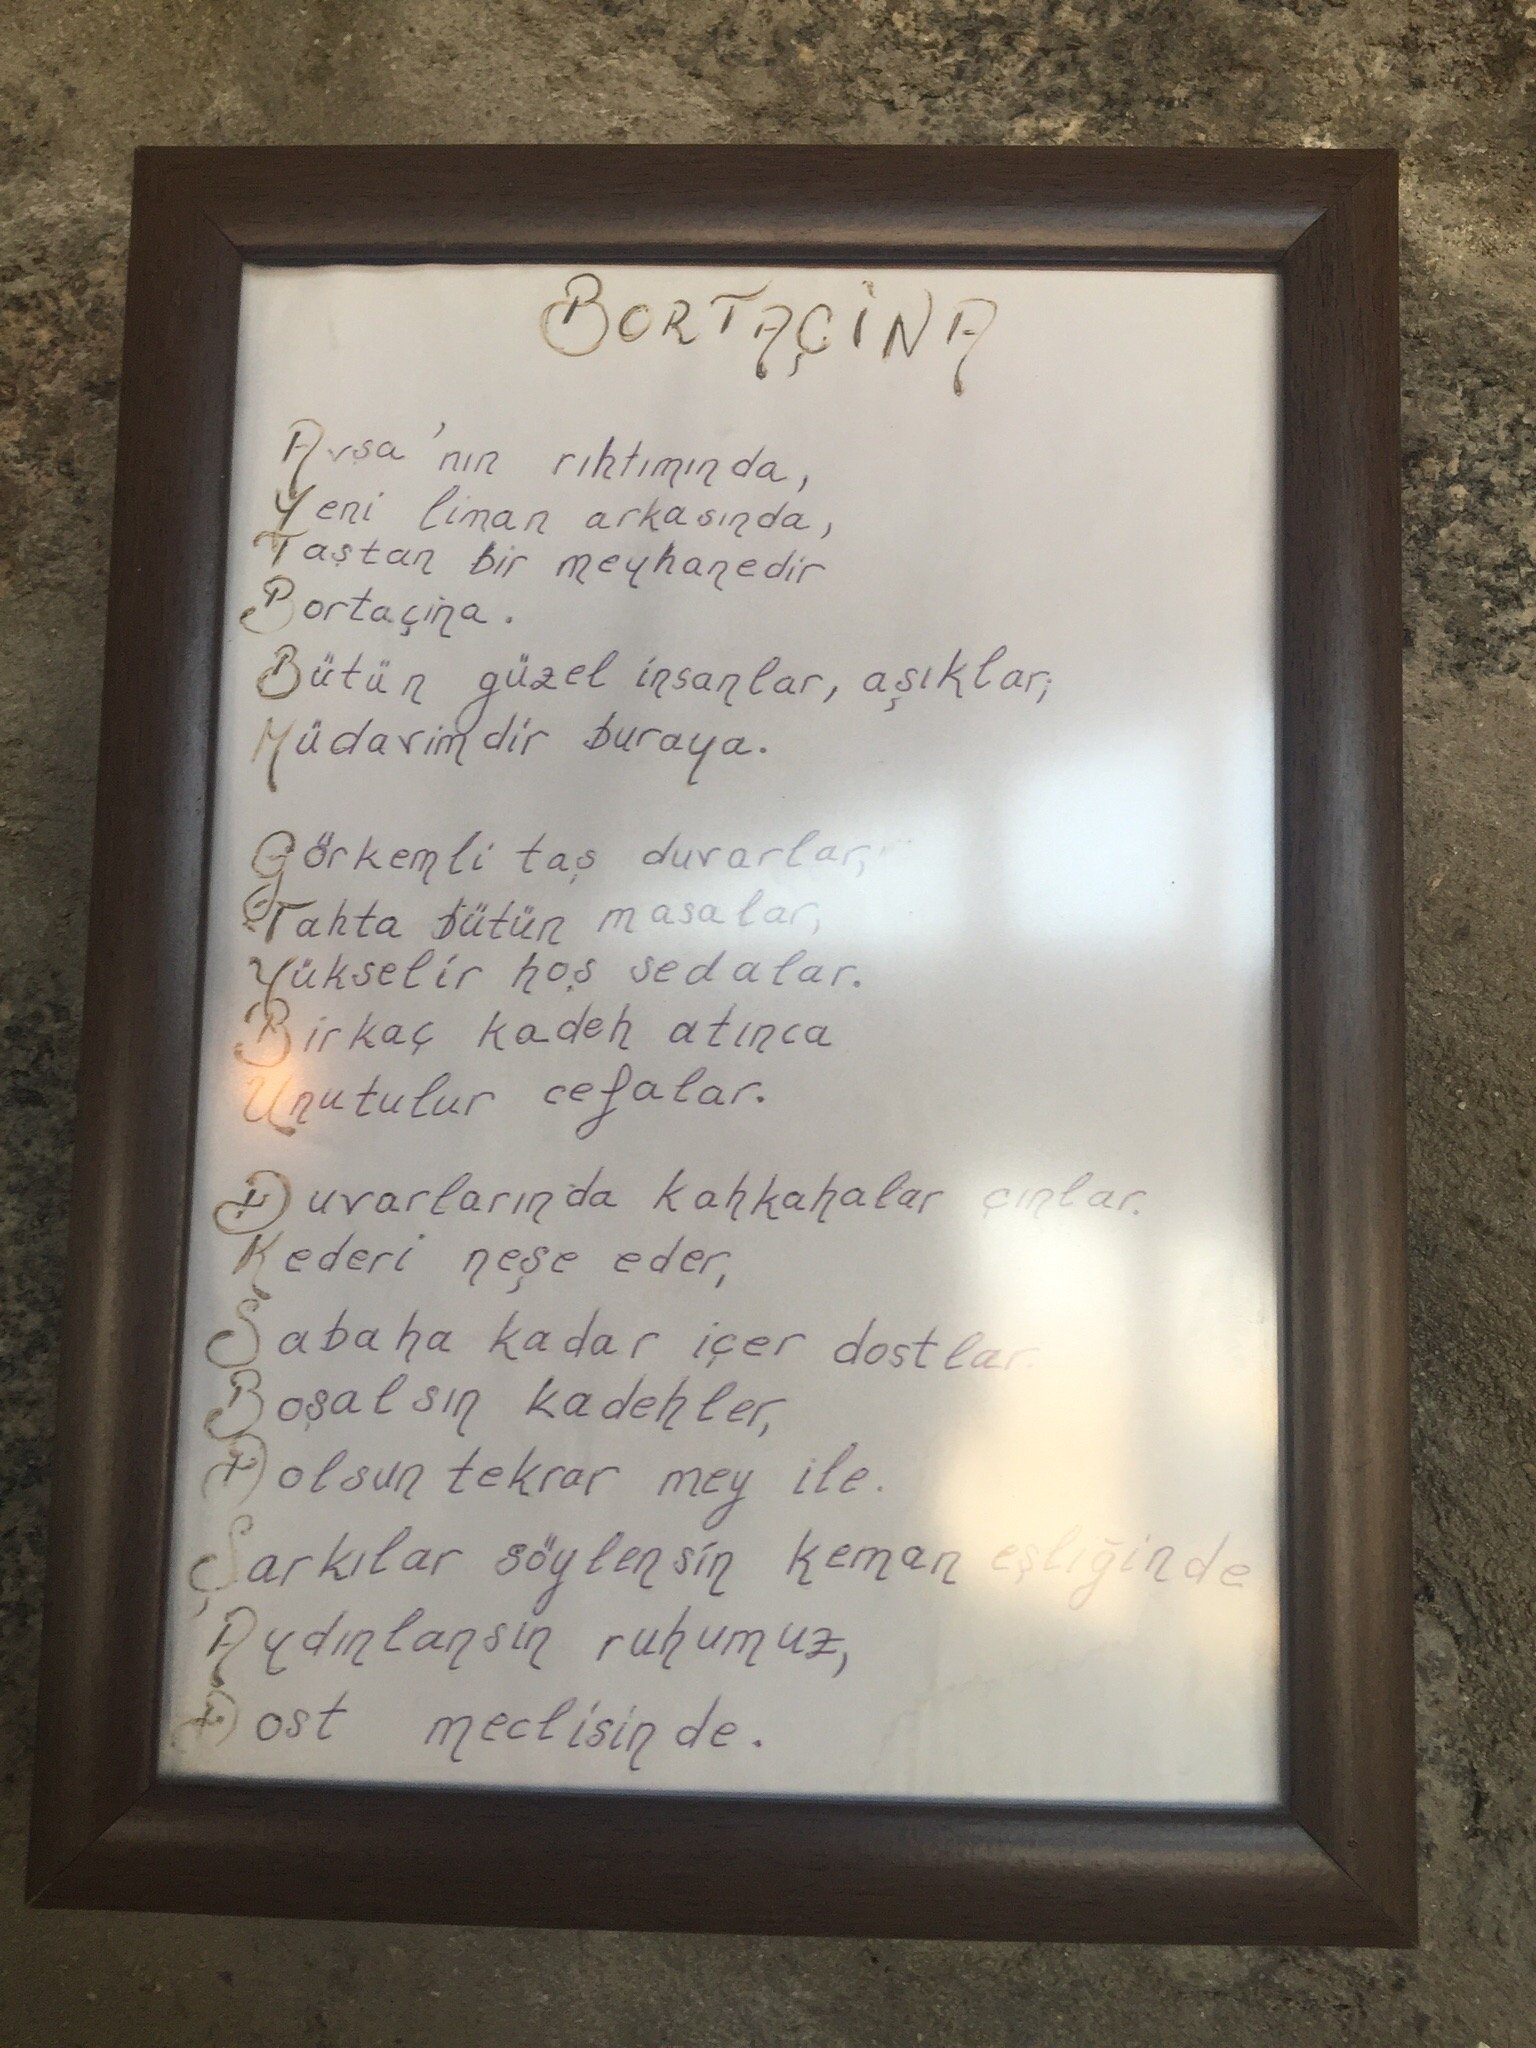 BORTAÇİNA
Avşa'nın rıhtımında,
Yeni liman arkasında,
Taştan bir meyhanedir
Bortaçina.
Bütün güzel insanlar, aşıklar,
Müdavimdir buraya.
Görkemli taş duvarlar,
Tahta bütün masalar,
Yükselir hoş sedalar.
Birkaç kadeh atınca
Unutulur cefalar.
Duvarlarında kahkahalar çınlar.
Kederi neşe eder,
Sabaha kadar içer dostlar.
Boşalsın kadehler,
Dolsun tekrar mey ile.
Şarkılar söylensin keman eşliğinde
Aydınlansın ruhumuz,
Dost meclisinde.